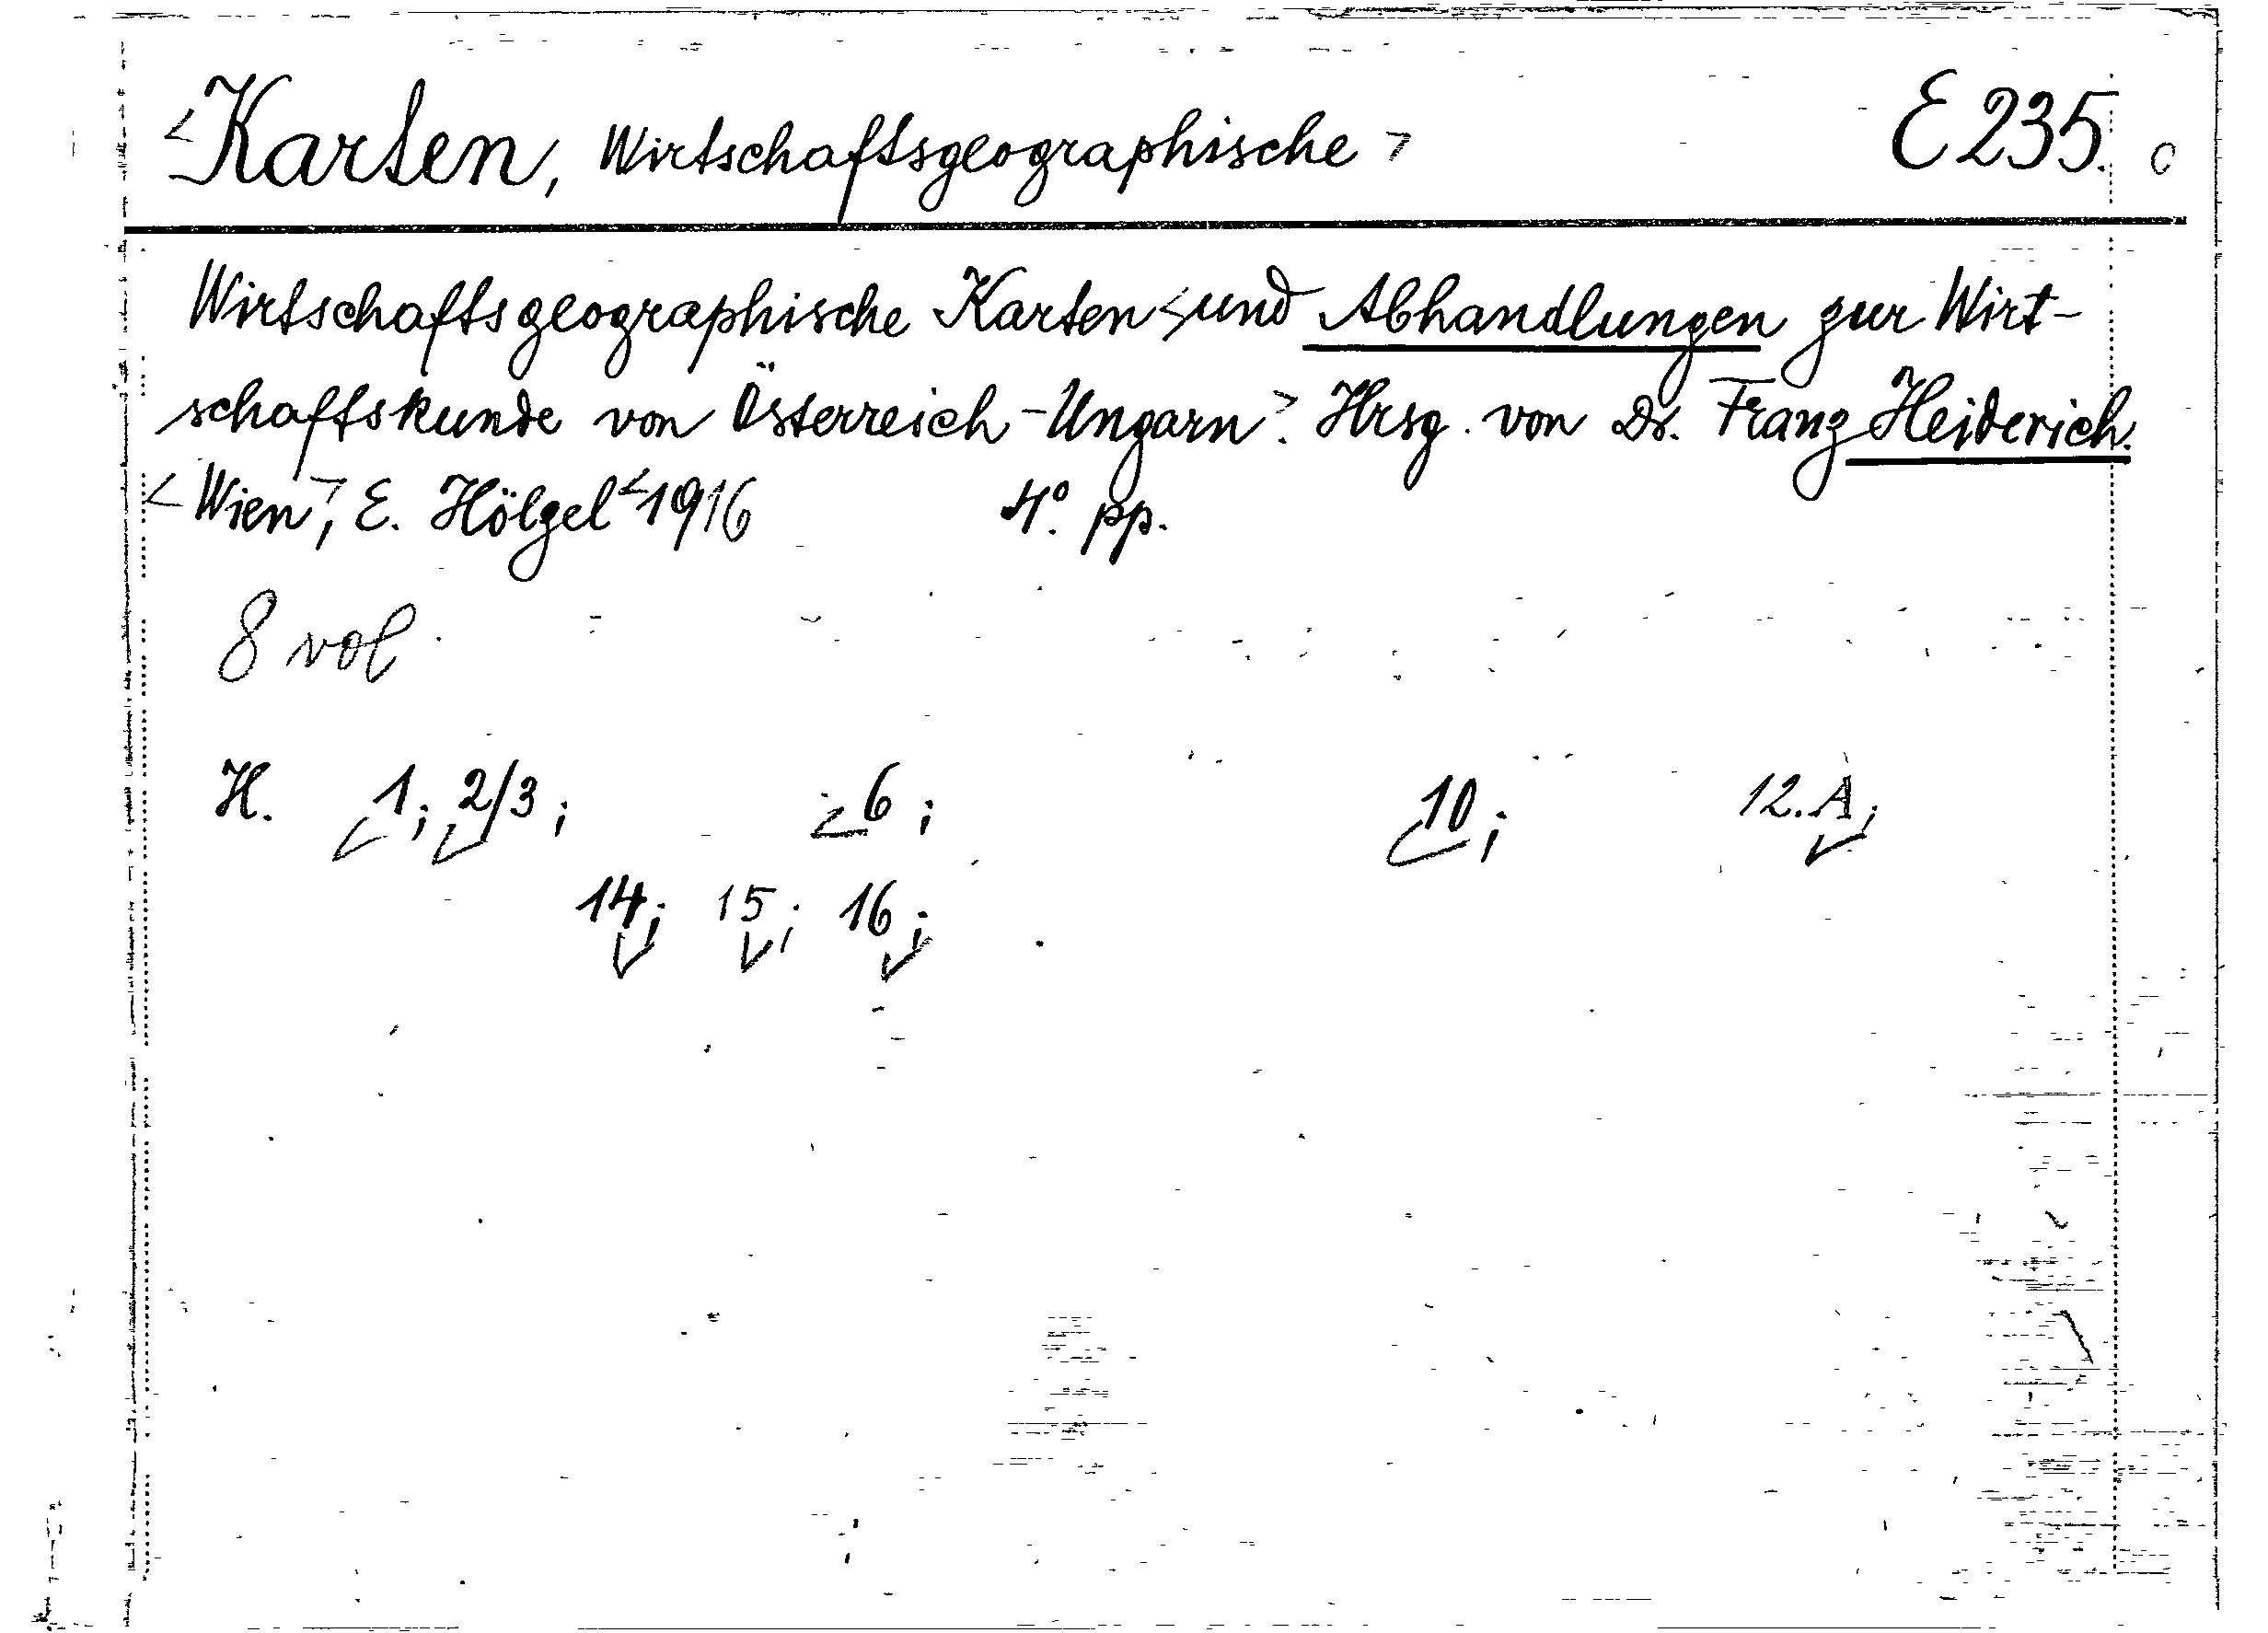 <Karten, Wirtschaftsgeographische> E 235.
Wirtschaftsgeographische Karten <und Abhandlungen zur Wirt-
schaftskunde von Österreich-Ungarn>. Hrsg. von Dr. Franz Heiderich.
<Wien>, E. Hölzel <1916 4° pp.
8 vol
H. 1; 2/3; 6; 10; 12.A;
14; 15; 16;